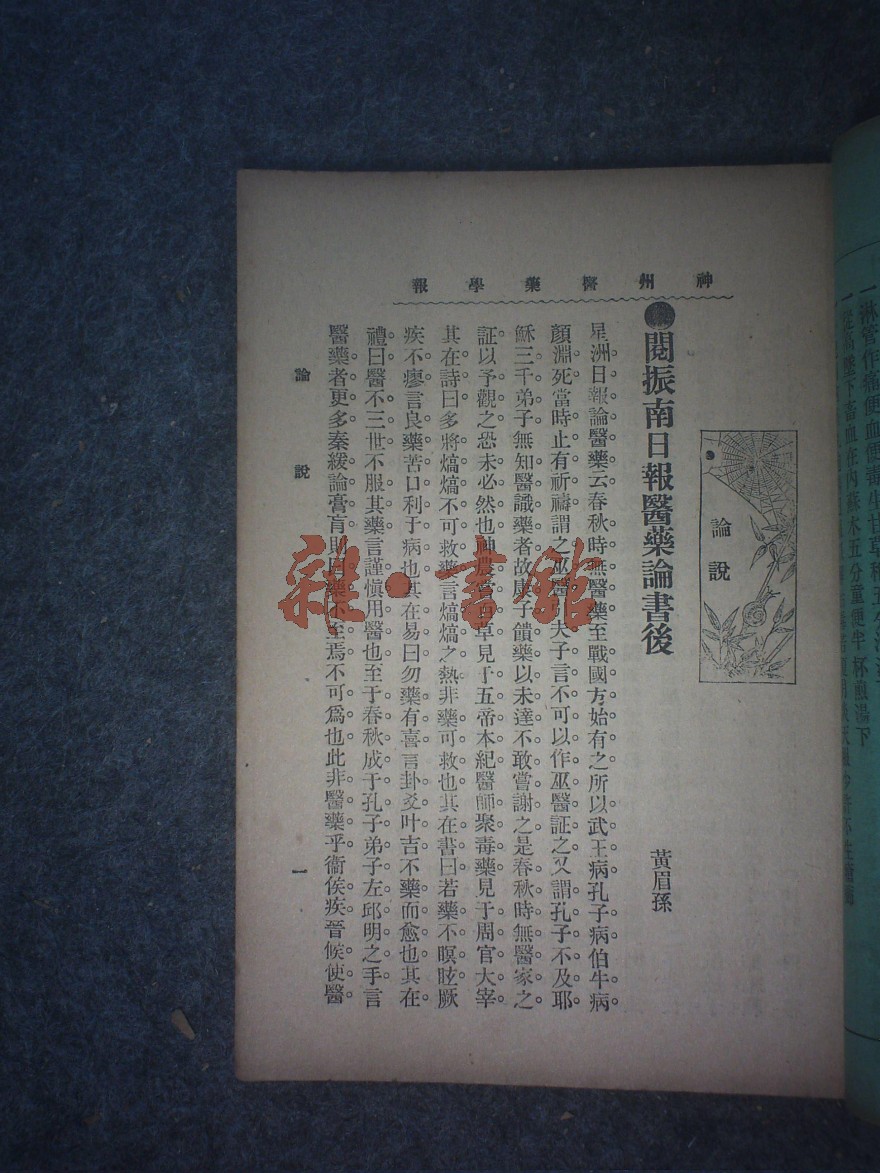 神州醫藥學報
論說
●閱振南日報醫藥論書後
黃眉孫
星洲日報論醫藥云春秋時無醫藥至戰國方始有之所以武王病孔子病伯牛病
顏淵死當時止有祈禱謂之巫醫引夫子言不可以作巫醫証之又謂孔子不及耶
穌三千弟子無知醫識藥者故康子饋藥以未達不敢嘗謝之是春秋時無醫家之
証以予觀之恐未必然也神農嘗百草見于五帝本紀醫師聚毒藥見于周官大宰
其在詩曰多將熇熇不可救藥言熇熇之熱非藥可救也其在書曰若藥不瞑眩厥
疾不瘳言良藥苦口利于病也其在易曰勿藥有喜言卦爻叶吉不藥而愈也其在
禮曰醫不三世不服其藥言謹慎用醫也至于春秋成于孔子弟子左邱明之手言
醫藥者更多秦緩論膏肓則曰藥不至焉不可為也此非醫藥乎衞侯疾晉候使醫
論說
一
雜·書館
一淋管作痛便血便毒生甘草
一從高墜下畜血在內蘇木五分童便半杯煎湯下